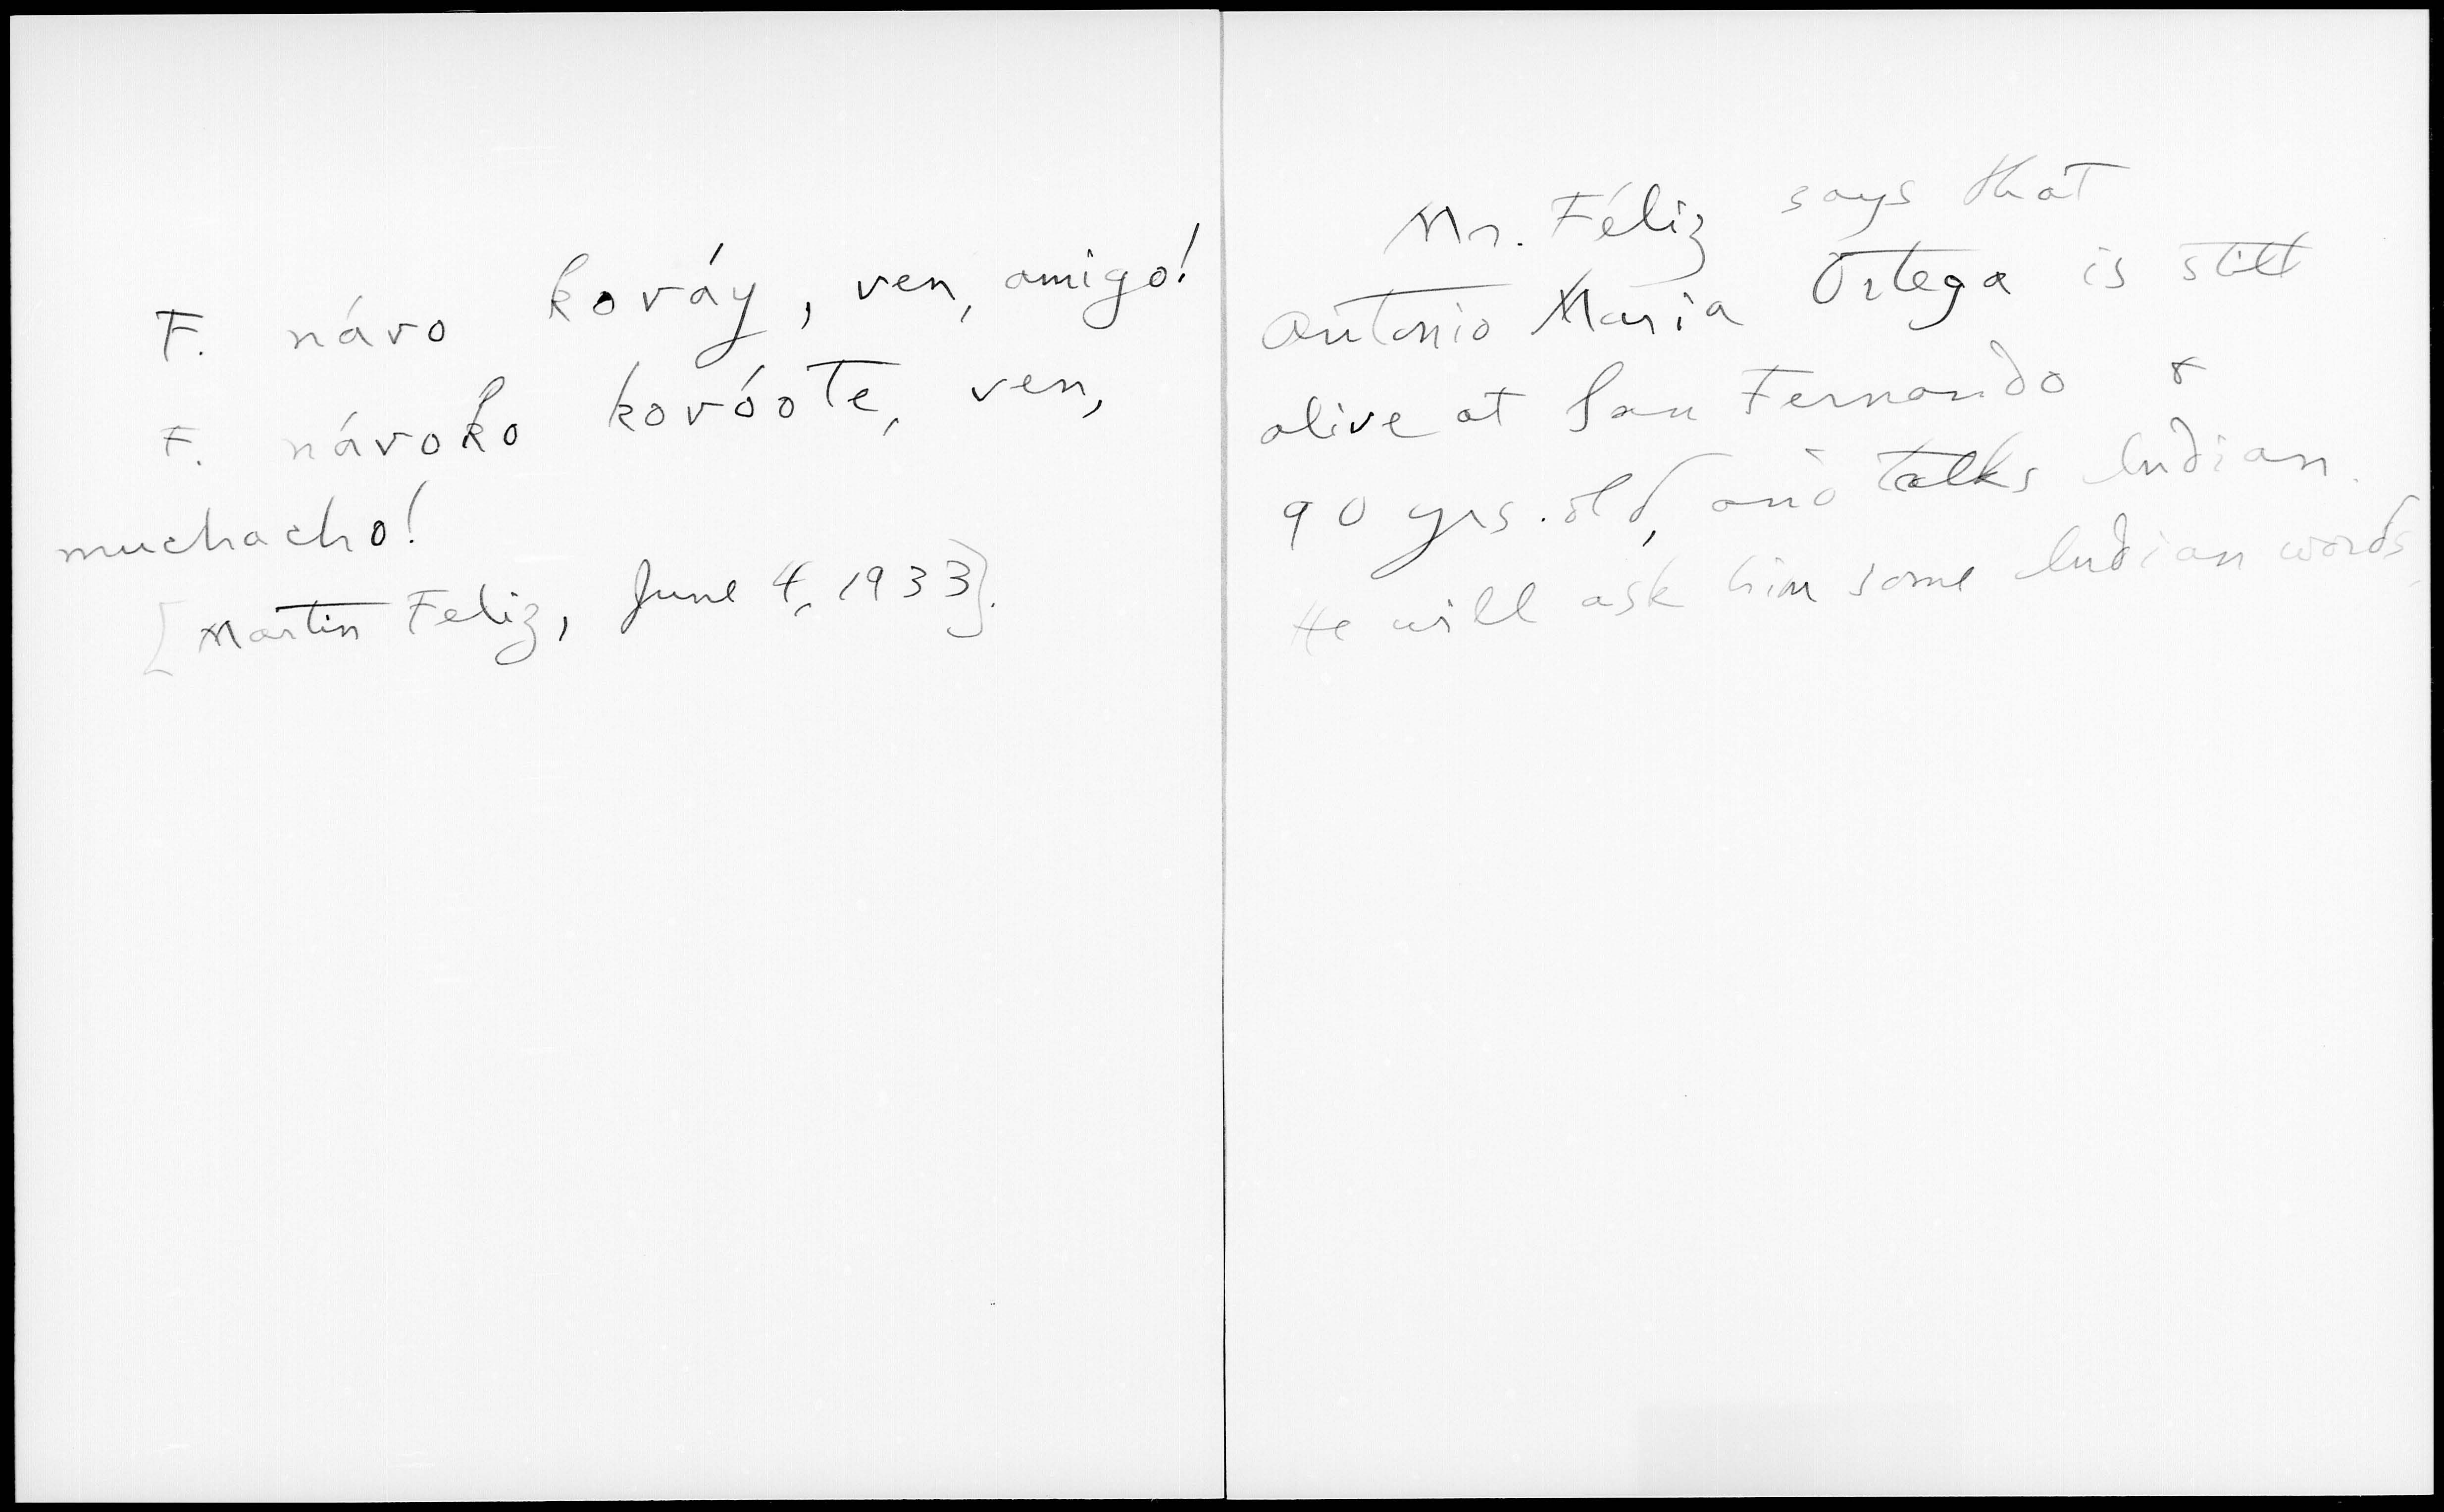 F. návo kováy, ven, amigo!
F. návoko kovóote, ven,
muchacho!
[Martin Feliz, June 4, 1933].
Mr. Féliz says that
Antonio Maria Ortega is still
alive at San Fernando &
90 yrs. old, and talks Indian.
He will ask him some Indian words.